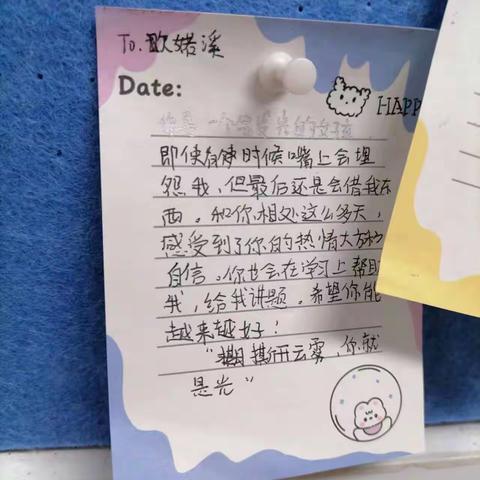 To.欧婼溪
Date:
HAPP
一个会发光的女孩
即使有时候嘴上会埋
怨我，但最后还是会借我东
西。和你相处这么多天，
感受到了你的热情大方和
自信。你也会在学习上帮助
我，给我讲题。希望你能
越来越好！
云雾，你就
是光”